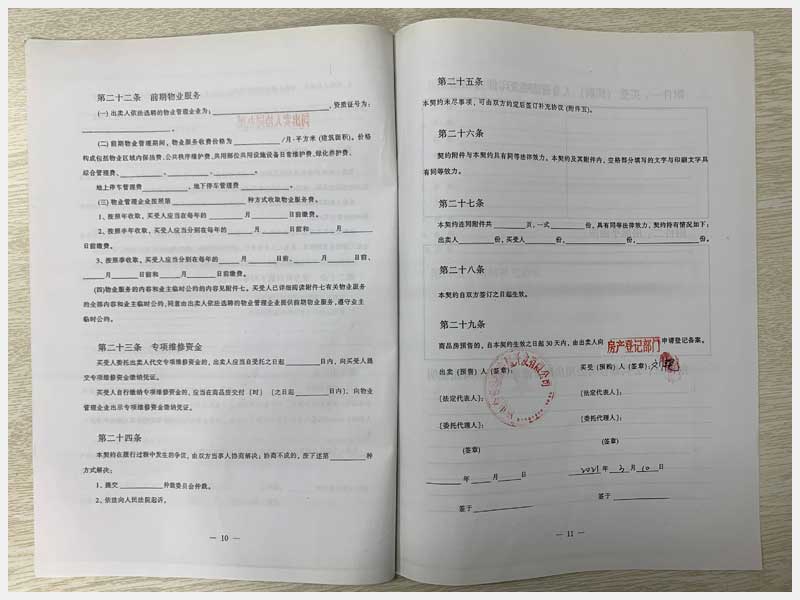 第二十二条 前期物业服务
(一) 出卖人依法选聘的物业管理企业为：____________________，资质证号为：
________________。
(二) 前期物业管理期间，物业服务收费价格为__________/月·平方米 (建筑面积)。价格
构成包括物业区域内保洁费、公共秩序维护费、共用部位共用设施设备日常维护费、绿化养护费、
综合管理费、__________、__________、__________。
地上停车管理费__________，地下停车管理费__________。
(三) 物业管理企业按照第______________种方式收取物业服务费。
1、按照年收取，买受人应当在每年的______月______日前缴费。
2、按照半年收取，买受人应当分别在每年的______月______日前和______月______
日前缴费。
3、按照季收取，买受人应当分别在每年的______月______日前、______月______日前、
______月______日前和______月______日前缴费。
(四)物业服务的内容和业主临时公约的内容见附件七。买受人已详细阅读附件七有关物业服务
的全部内容和业主临时公约，同意由出卖人依法选聘的物业管理企业提供前期物业服务，遵守业主
临时公约。
第二十三条 专项维修资金
买受人委托出卖人代交专项维修资金的，出卖人应当自受托之日起________日内，向买受人提
交专项维修资金缴纳凭证。
买受人自行缴纳专项维修资金的，应当在商品房交付 [时] [之日起________日内]，向物业
管理企业出示专项维修资金缴纳凭证。
第二十四条
本契约在履行过程中发生的争议，由双方当事人协商解决；协商不成的，按下述第________种
方式解决：
1、提交__________仲裁委员会仲裁。
2、依法向人民法院起诉。
— 10 —
第二十五条
本契约未尽事项，可由双方约定后签订补充协议 (附件五)。
第二十六条
契约附件与本契约具有同等法律效力。本契约及其附件内，空格部分填写的文字与印刷文字具
有同等效力。
第二十七条
本契约连同附件共________页，一式________份，具有同等法律效力，契约持有情况如下：
出卖人________份，买受人________份，______________份，______________份。
第二十八条
本契约自双方签订之日起生效。
第二十九条
商品房预售的，自本契约生效之日起30天内，由出卖人向房产登记部门申请登记备案。
出卖 (预售) 人 (签章)：
买受 (预购) 人 (签章)：
[法定代表人]：
[法定代表人]：
[委托代理人]：
[委托代理人]：
(签章)
(签章)
______年______月______日
2021年3月10日
签于__________
签于__________
— 11 —